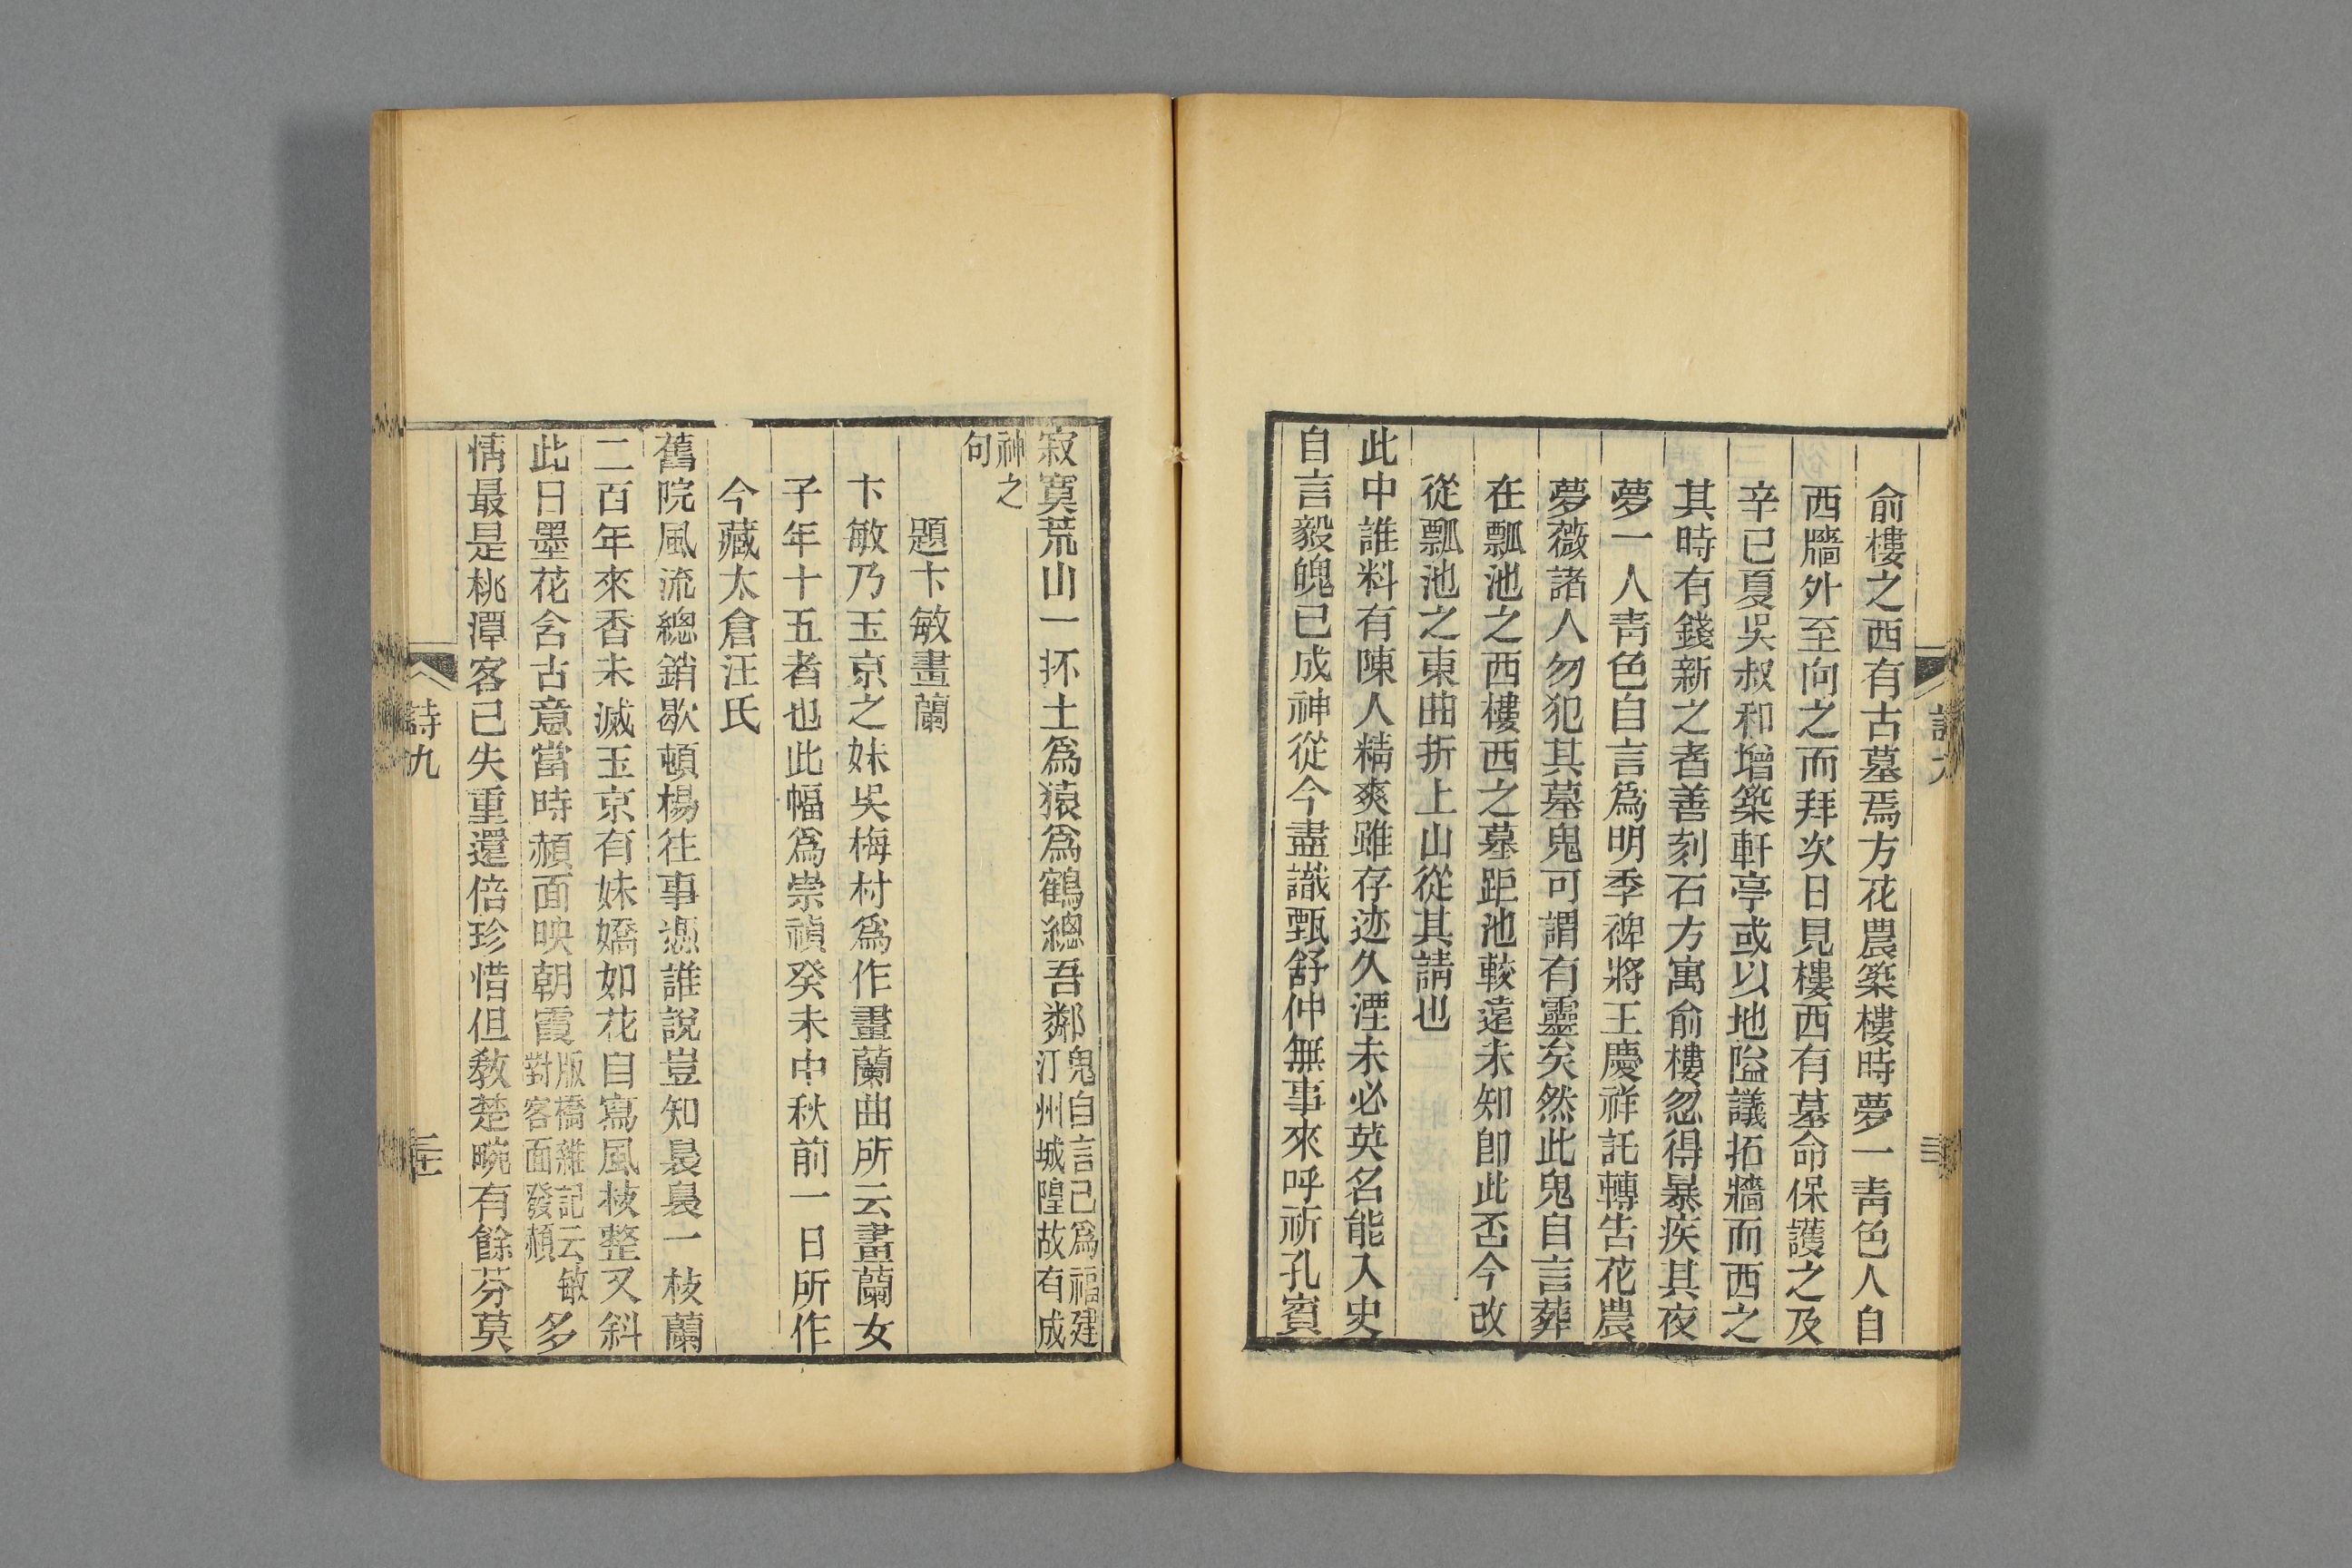 俞樓之西有古墓焉方花農築樓時夢一青色人自
西牆外至向之而拜次日見樓西有墓命保護之及
辛已夏吳叔和增築軒亭或以地隘議拓牆而西之
其時有錢新之者善刻石方寓俞樓忽得暴疾其夜
夢一人青色自言爲明季碑將王慶祥託轉告花農
夢薇諸人勿犯其墓鬼可謂有靈矣然此鬼自言葬
在瓢池之西樓西之墓距池較遠未知卽此否今改
從瓢池之東曲折上山從其請也
此中誰料有陳人精爽雖存迹久湮未必英名能入史
自言毅魄已成神從今盡識甄舒仲無事來呼祈孔賓
寂寞荒山一抔土爲猿爲鶴總吾鄰鬼自言已爲福建汀州城隍故有成
神之句
題卞敏畫蘭
卞敏乃玉京之妹吳梅村爲作畫蘭曲所云畫蘭女
子年十五者也此幅爲崇禎癸未中秋前一日所作
今藏太倉汪氏
舊院風流總銷歇頓楊往事憑誰說豈知裊裊一枝蘭
二百年來香未滅玉京有妹嬌如花自寫風枝整又斜
此日墨花含古意當時頳面映朝霞版橋雜記云敏對客面發頳多
情最是桃潭客已失重還倍珍惜但敎楚畹有餘芬莫
詩九